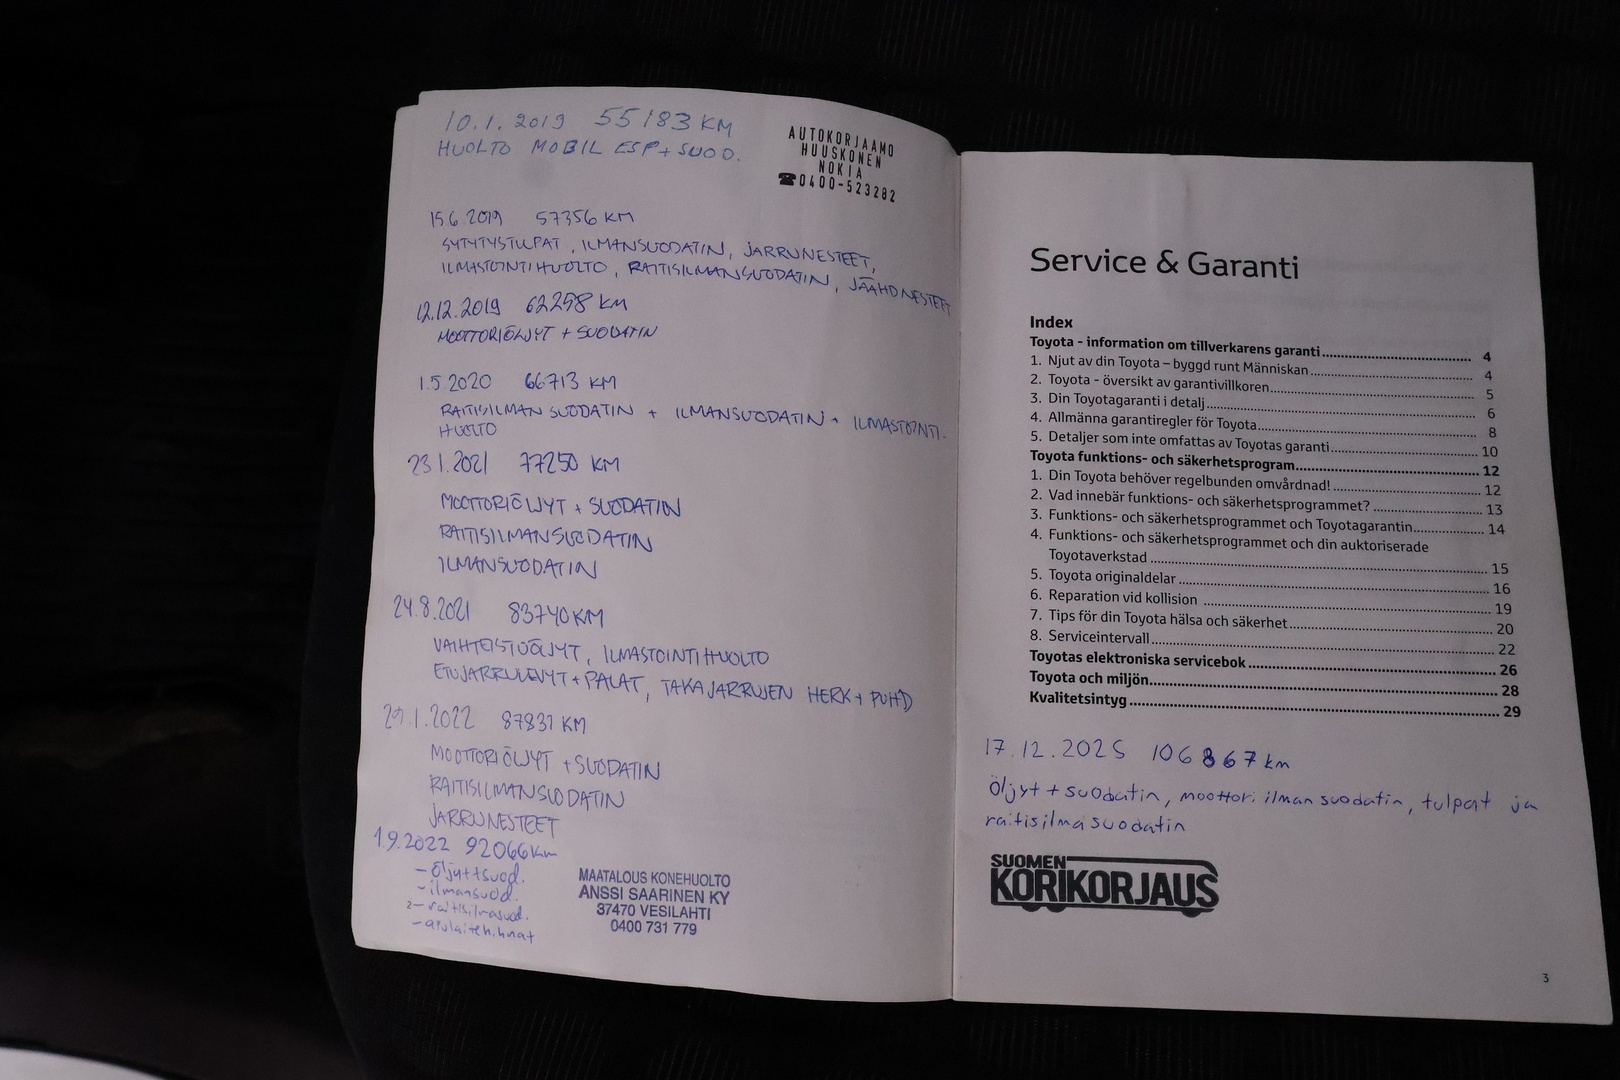 10.1.2019 55183 KM
HUOLTO MOBIL ESP + SUOD.
AUTOKORJAAMO
HUUSKONEN
NOKIA
☎0400-523282
15.6.2019 57356 KM
SYTYTYSTULPAT, ILMANSUODATIN, JARRUNESTEET,
ILMASTOINTIHUOLTO, RAITISILMANSUODATIN, JÄÄHDNESTEET
12.12.2019 62298 KM
MOOTTORIÖLJYT + SUODATIN
1.5.2020 66713 KM
RAITISILMANSUODATIN + ILMANSUODATIN + ILMASTOINTI-
HUOLTO
23.1.2021 77250 KM
MOOTTORIÖLJYT + SUODATIN
RAITISILMANSUODATIN
ILMANSUODATIN
24.8.2021 83740 KM
VAIHTEISTOÖLJYT, ILMASTOINTIHUOLTO
ETUJARRULEVYT + PALAT, TAKAJARRUJEN HERK + PUHD
29.1.2022 87831 KM
MOOTTORIÖLJYT + SUODATIN
RAITISILMANSUODATIN
JARRUNESTEET
1.9.2022 92066 km
- öljyt+suod.
- ilmansuod.
- raitisilmasuod.
- apulaiteh.hnat
MAATALOUS KONEHUOLTO
ANSSI SAARINEN KY
37470 VESILAHTI
0400 731 779
Service & Garanti
Index
Toyota - information om tillverkarens garanti 4
1. Njut av din Toyota – byggd runt Människan 4
2. Toyota - översikt av garantivillkoren 5
3. Din Toyotagaranti i detalj 6
4. Allmänna garantiregler för Toyota 8
5. Detaljer som inte omfattas av Toyotas garanti 10
Toyota funktions- och säkerhetsprogram 12
1. Din Toyota behöver regelbunden omvårdnad! 12
2. Vad innebär funktions- och säkerhetsprogrammet? 13
3. Funktions- och säkerhetsprogrammet och Toyotagarantin 14
4. Funktions- och säkerhetsprogrammet och din auktoriserade
Toyotaverkstad 15
5. Toyota originaldelar 16
6. Reparation vid kollision 19
7. Tips för din Toyota hälsa och säkerhet 20
8. Serviceintervall 22
Toyotas elektroniska servicebok 26
Toyota och miljön 28
Kvalitetsintyg 29
17.12.2025 106867 km
Öljyt + suodatin, moottori ilman suodatin, tulpat ja
raitisilmasuodatin
SUOMEN
KORIKORJAUS
3